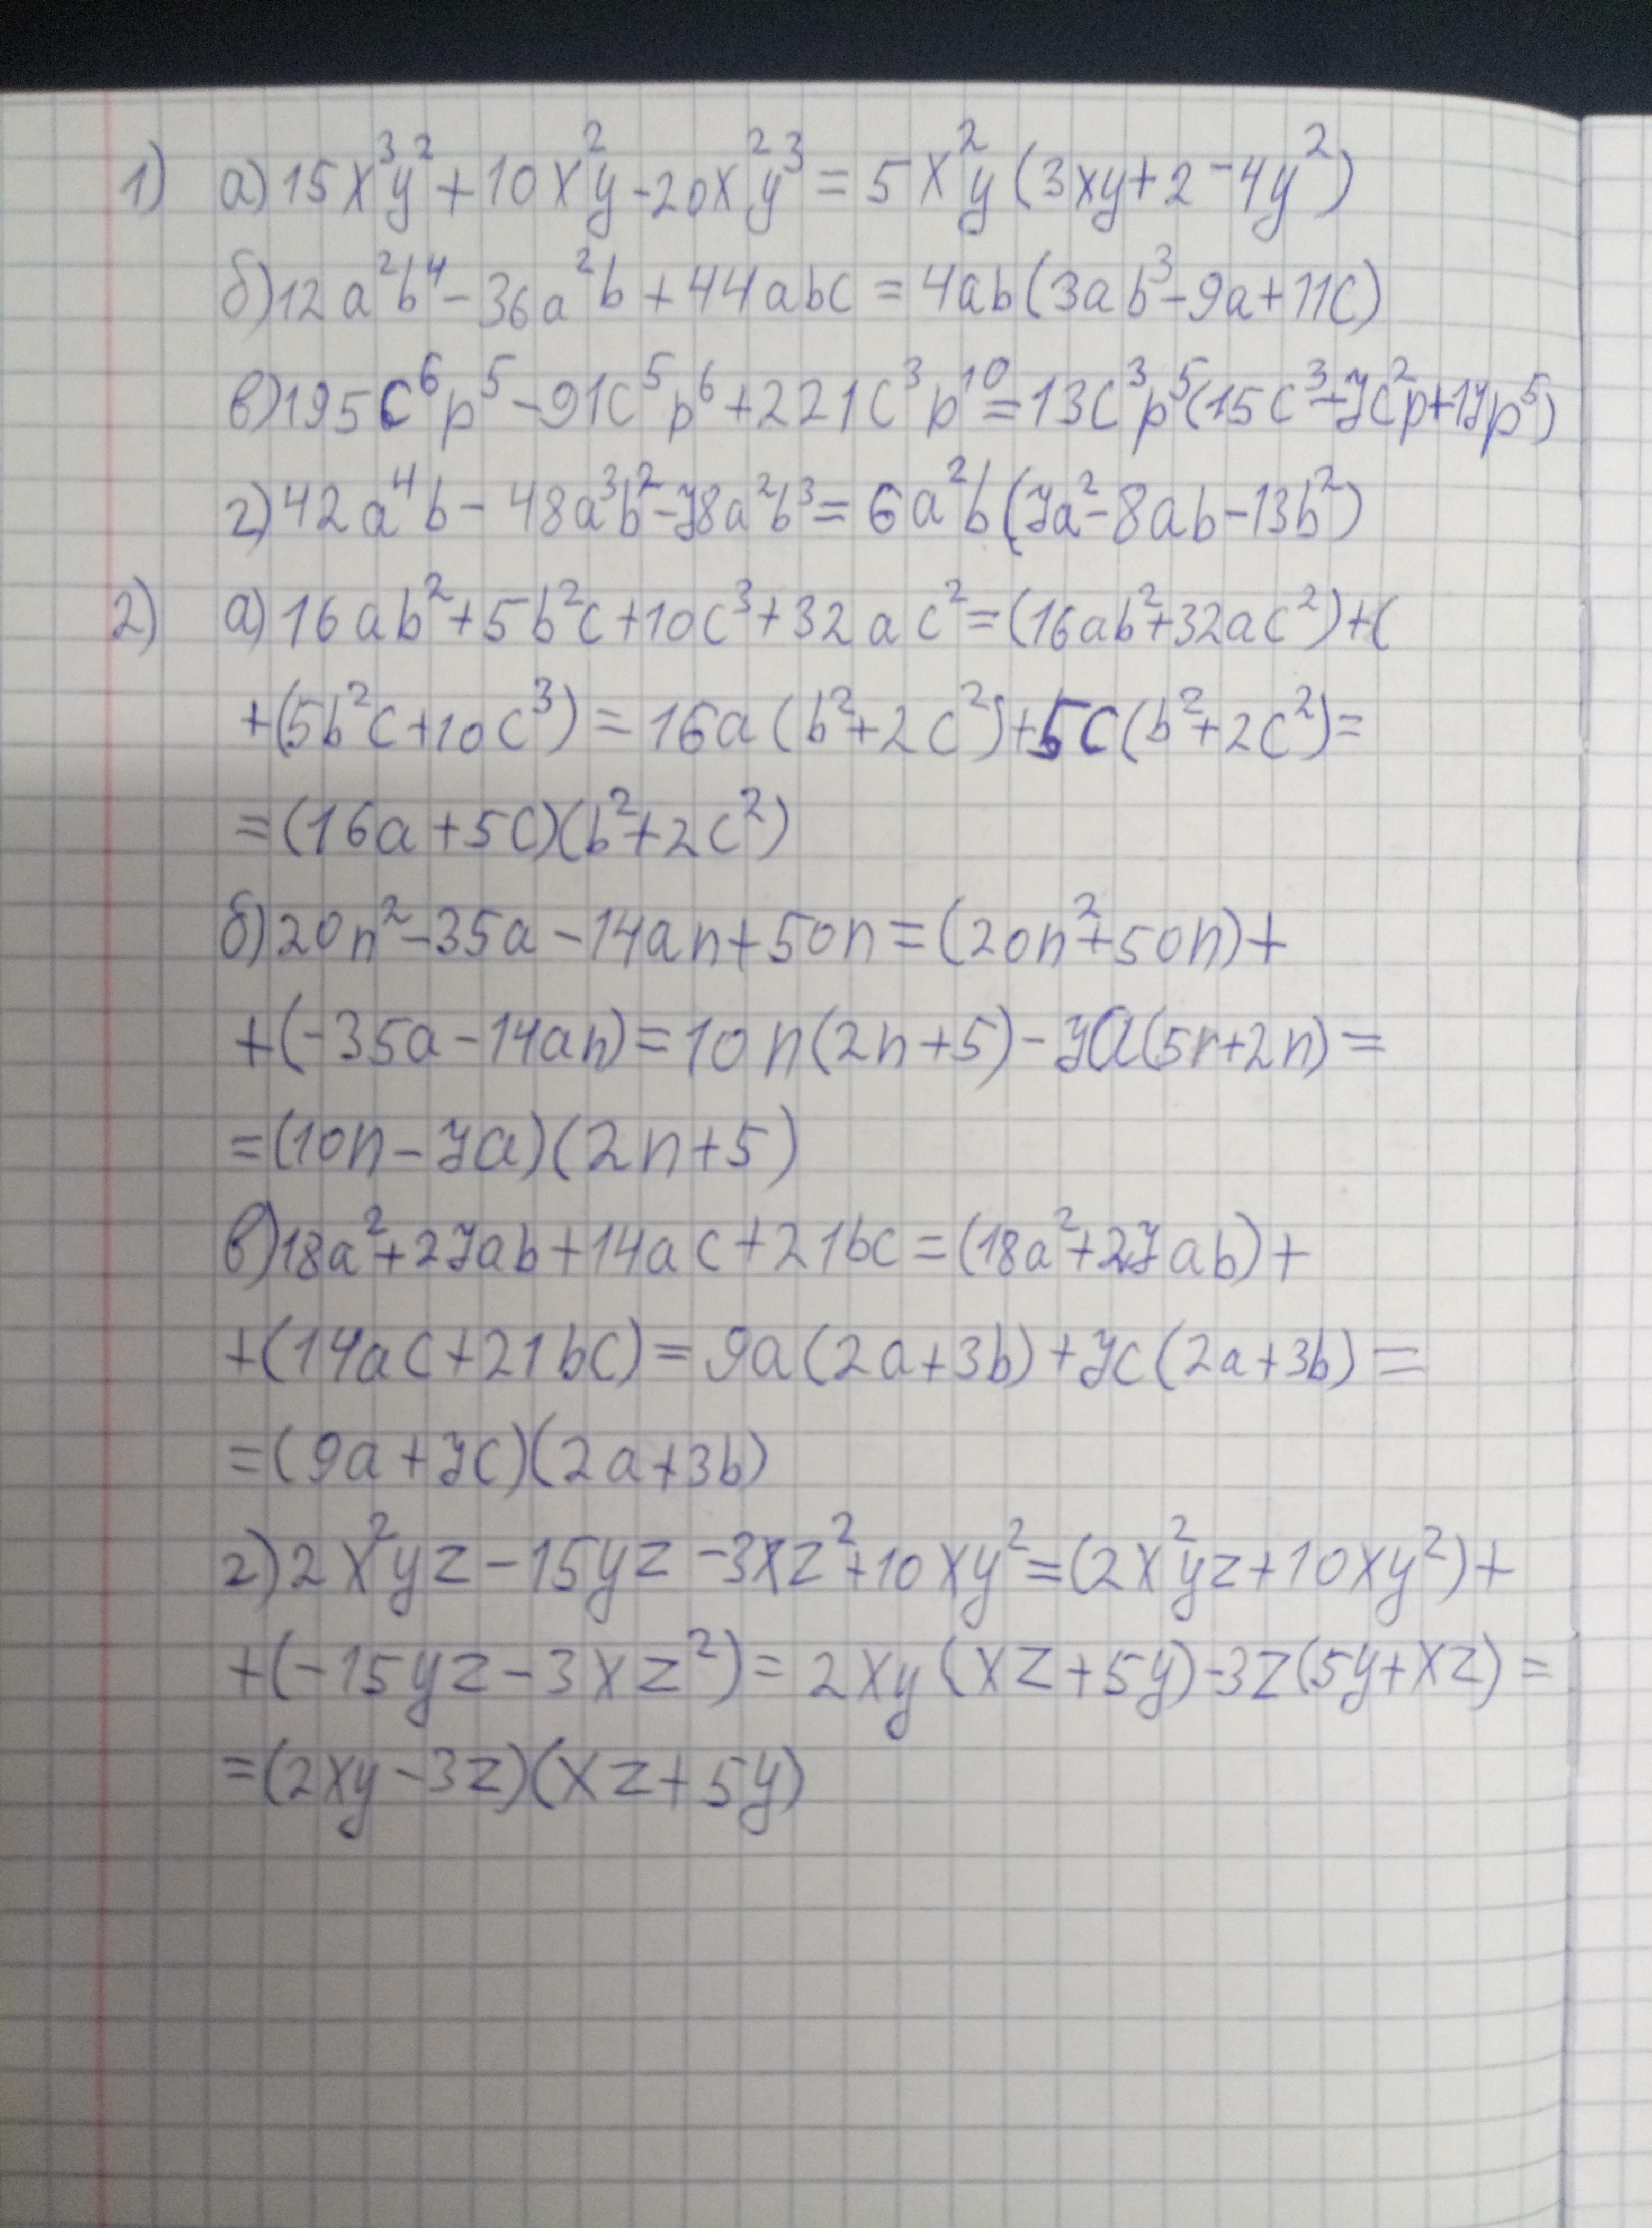 1) а) 15x³y² + 10x²y - 20x²y³ = 5x²y (3xy + 2 - 4y²)
б) 12a²b⁴ - 36a²b + 44abc = 4ab (3ab³ - 9a + 11c)
в) 195c⁶p⁵ - 91c⁵p⁶ + 221c³p¹⁰ = 13c³p⁵ (15c³ - 7c²p + 17p⁵)
г) 42a⁴b - 48a³b² - 78a²b³ = 6a²b (7a² - 8ab - 13b²)
2) а) 16ab² + 5b²c + 10c³ + 32ac² = (16ab² + 32ac²) + (
+ (5b²c + 10c³) = 16a (b² + 2c²) + 5c (b² + 2c²) =
= (16a + 5c)(b² + 2c²)
б) 20n² - 35a - 14an + 50n = (20n² + 50n) +
+ (-35a - 14an) = 10n (2n + 5) - 7a (5+2n) =
= (10n - 7a) (2n + 5)
в) 18a² + 27ab + 14ac + 21bc = (18a² + 27ab) +
+ (14ac + 21bc) = 9a (2a + 3b) + 7c (2a + 3b) =
= (9a + 7c)(2a + 3b)
г) 2x²yz - 15yz - 3xz² + 10xy² = (2x²yz + 10xy²) +
+ (-15yz - 3xz²) = 2xy (xz + 5y) - 3z (5y + xz) =
= (2xy - 3z)(xz + 5y)